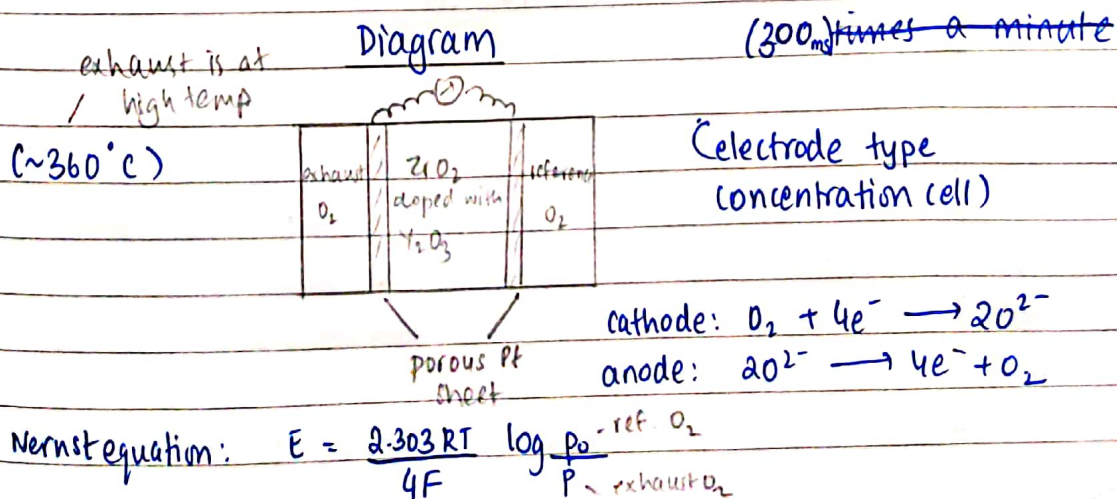 Diagram
(300ms) times a minute
exhaust is at
high temp
(~360°C)
exhaust
O₂
ZrO₂
doped with
Y₂O₃
reference
O₂
(electrode type
concentration cell)
porous Pt
sheet
cathode: O₂ + 4e⁻ → 2O²⁻
anode: 2O²⁻ → 4e⁻ + O₂
Nernst equation: E = 2.303RT/4F log p₀/p
ref. O₂
exhaust O₂